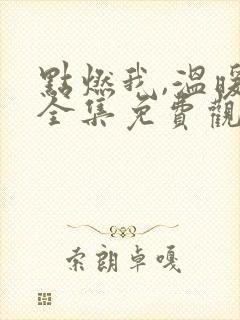 點燃我,溫暖
全集免費觀
索朗卓嘎